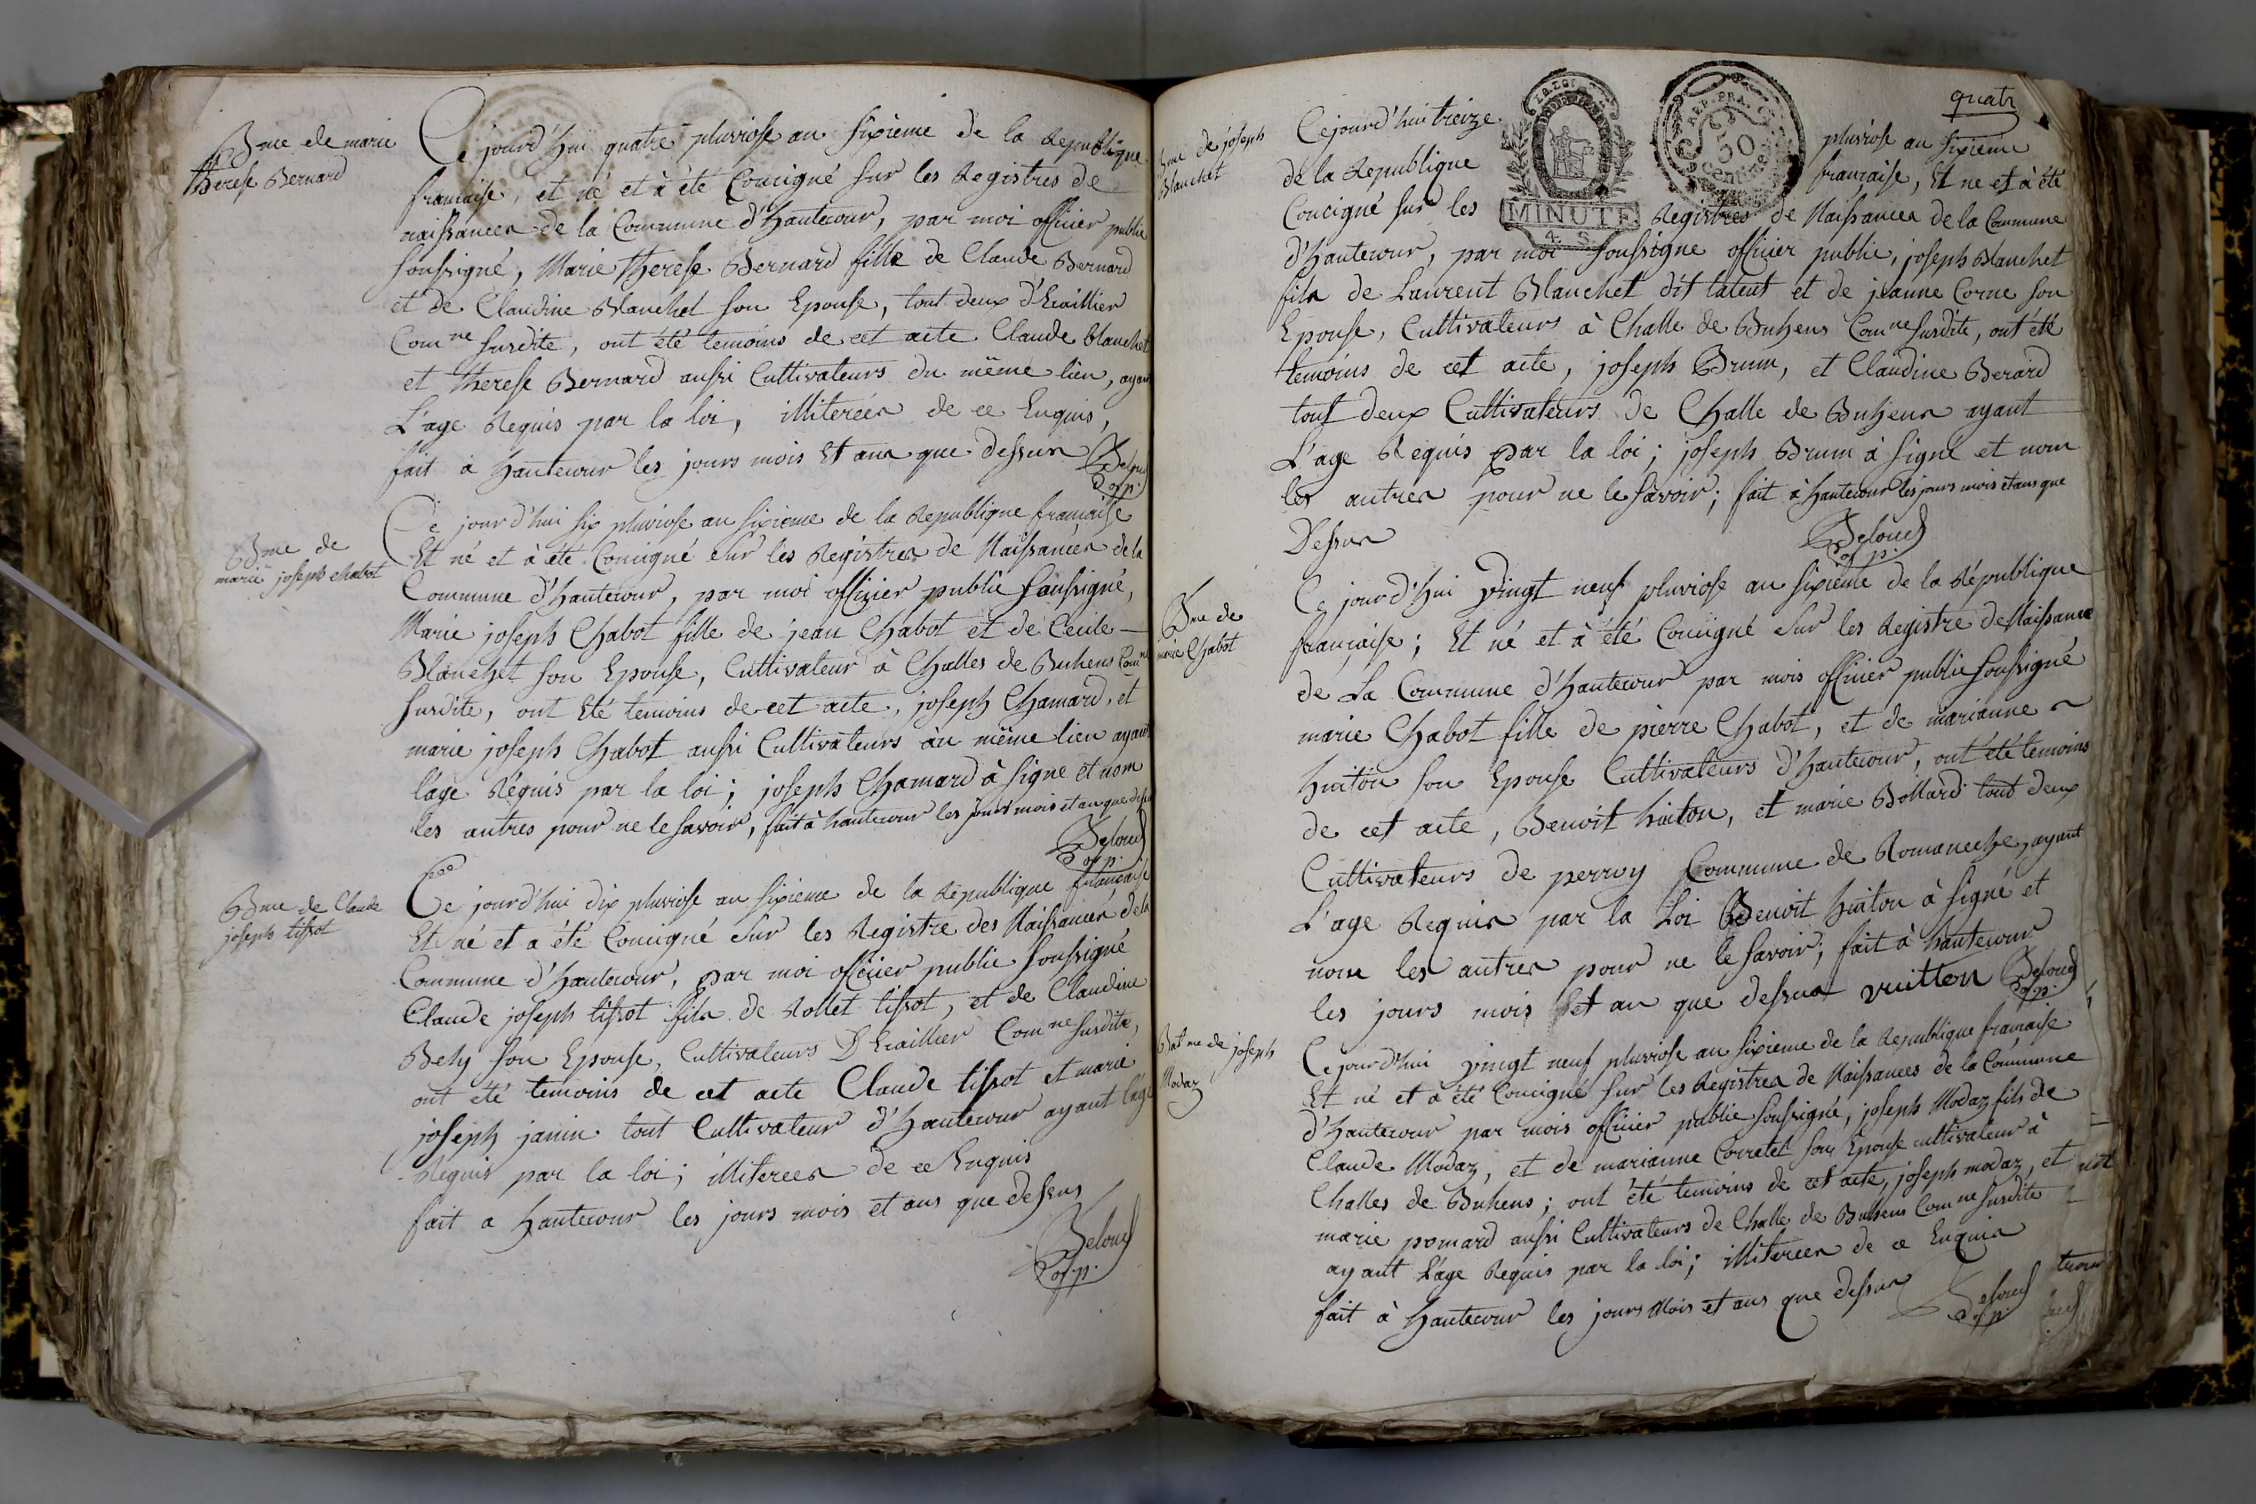 Bme de marie
therese Bernard
Ce jourd'hui quatre pluviose au sixieme de la Republique
francaise, et né et à été Concigné sur les Registres de
naissances de la Commune d'hautecour, par moi officier public
soussigné, Marie therese Bernard fille de Claude Bernard
et de Claudine Blanchet son Epouse, tout deux d'hraillier
Comne susdite, ont été temoins de cet acte Claude blanchet
et therese Bernard aussi Cultivateurs du même lieu, ayant
L'age Requis par la loi, illiterées de ce Enquis,
fait à hautecour les jours mois Et ans que dessus
Deloud
of. p.
Bme de
marie joseph chabot
Ce jourd'hui six pluviose au sixieme de la Republique francaise
Et né et à été Concigné sur les Registres de Naissances de la
Commune d'hautecour, par moi officier public soussigné,
Marie joseph Chabot fille de jean Chabot et de Cecile
Blanchet son Epouse, Cultivateur à Challes de Buhens Comne
susdite, ont été temoins de cet acte, joseph Chamard, et
marie joseph Chabot aussi Cultivateurs du même lieu ayant
l'age Réquis par la loi; joseph Chamard à signe et nom
les autres pour ne le savoir, fait à hautecour les jours mois et an que dessus
Deloud
of. p.
Bme de Claude
joseph tissot
Ce jourd'hui dix pluviose an sixieme de la Republique francaise
Et né et a été Concigné sur les Registre des Naissances de la
Commune d'hautecour, par moi officier public soussigné
Claude joseph tissot fils de Rollet tissot, et de Claudine
Bely son Epouse, Cultivateurs D'hraillier Comne susdite,
ont été temoins de cet acte Claude tissot et marie
joseph janin tout Cultivateur d'hautecour ayant l'age
Requis par la loi; illiterees de ce Enquis
fait a hautecour les jours mois et ans que dessus
Deloud
of. p.
quatr
LA LOI
MINUTE
4. S.
REP. FRA.
50
Centimes
Bme de joseph
Blanchet
Cejourd'hui treize pluviose au sixieme
de la Republique francaise, Et ne et à été
Concigné sur les Registres de Naissances de la Commune
d'hautecour, par moi soussigne officier public, joseph Blanchet
fils de Laurent Blanchet dit lateut et de jeanne Corne son
Epouse, Cultivateurs à Challe de Buhens Comne susdite, ont été
temoins de cet acte, joseph Brum, et Claudine Berard
tout deux Cultivateurs de Challe de Buhens ayant
L'age Réquis par la loi; joseph Brum à signé et nom
les autres pour ne le savoir; fait à hautecour les jours mois et ans que
Dessus
Deloud
of. p.
Bme de
marie Chabot
Ce jourd'hui vingt neuf pluviose an sixieme de la République
francaise; Et né et à été Concigné sur les Registre de Naissance
de La Commune d'hautecour par mois officier public soussigné
marie Chabot fille de pierre Chabot, et de marianne
huiton son Epouse Cultivateurs d'hautecour, ont été temoins
de cet acte, Benoit huiton, et marie Bollard tout deux
Cultivateurs de perroy Commune de Romaneche, ayant
L'age Requis par la Loi Benoit huiton à signé et
nom les autres pour ne le savoir; fait à hautecour
les jours mois Et an que dessus vuitton Deloud
of. p.
Bat me de joseph
Modaz
Cejourd'hui vingt neuf pluviose au sixieme de la Republique francaise
Et né et à été Concigné sur les Registres de Naissances de la Commune
d'hautecour par mois officier public soussigné, joseph Modaz fils de
Claude Modaz, et de marianne Corretet son Epouse cultivateur à
Challes de Buhens; ont été temoins de cet acte, joseph modaz, et
marie pomard aussi Cultivateurs de Challe de Buhens Comne susdite
ayant L'age Requis par la loi; illiterees de ce Enquis
fait à hautecour les jours Mois et ans que dessus
Deloud
of. p.